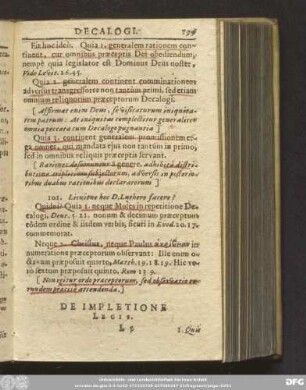 DECALOGI.
Fit hoc ideò. Quia 1. generalem rationem con-
tinent, cur omnibus præceptis Dei obediendum,
nempè quia legislator est Dominus Deus noster,
Vide Levit. 26. 45.
Quia 2. generalem continent comminationem
adversus transgressores non tantùm primi, sed etiam
omnium reliquorum præceptorum Decalogi.
[Affirmat enim Deus, se visitaturum iniquita-
tem patrum: At iniquitas complectitur generaliter
omnia peccata cum Decalogo pugnantia]
Quia 3. continent generalem promissionem er-
ga omnes, qui mandata ejus non tantùm in primo,
sed in omnibus reliquis præceptis servant.
[Rationes desumuntur à genere, adhibitâ distri-
butione subjectorum, adversis in posterio-
ribus duabus rationibus declaratorum]
102. Licuitne hoc D. Luthero facere?
Quidni? Quia 1. neque Moses in repetitione De-
calogi, Deut. 5. 21. nonum & decimum præceptum
eôdem ordine & iisdem verbis, sicuti in Exod. 20. 17.
commemorat.
Neque 2. Christus, neque Paulus
numeratione præceptorum observant: Ille enim
præposuit quarto, Matth. 19. 18. 19. Hic ve-
rò sextum præposuit quinto, Rom 13. 9.
[Non igitur ordo præceptorum, sed observatio eo-
rundem præcisè attendenda.]
DE IMPLETIONE
LEGIS.
L 5
1. Quis